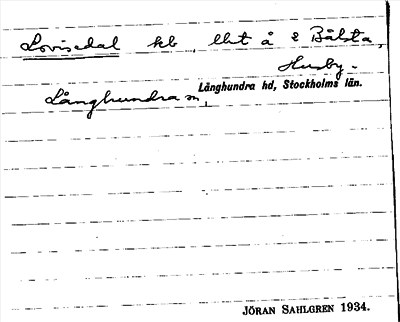 Lovisedal kb, lht å 2 Bålsta,
Husby-
Långhundra hd, Stockholms län.
Långhundra sn,
JÖRAN SAHLGREN 1934.